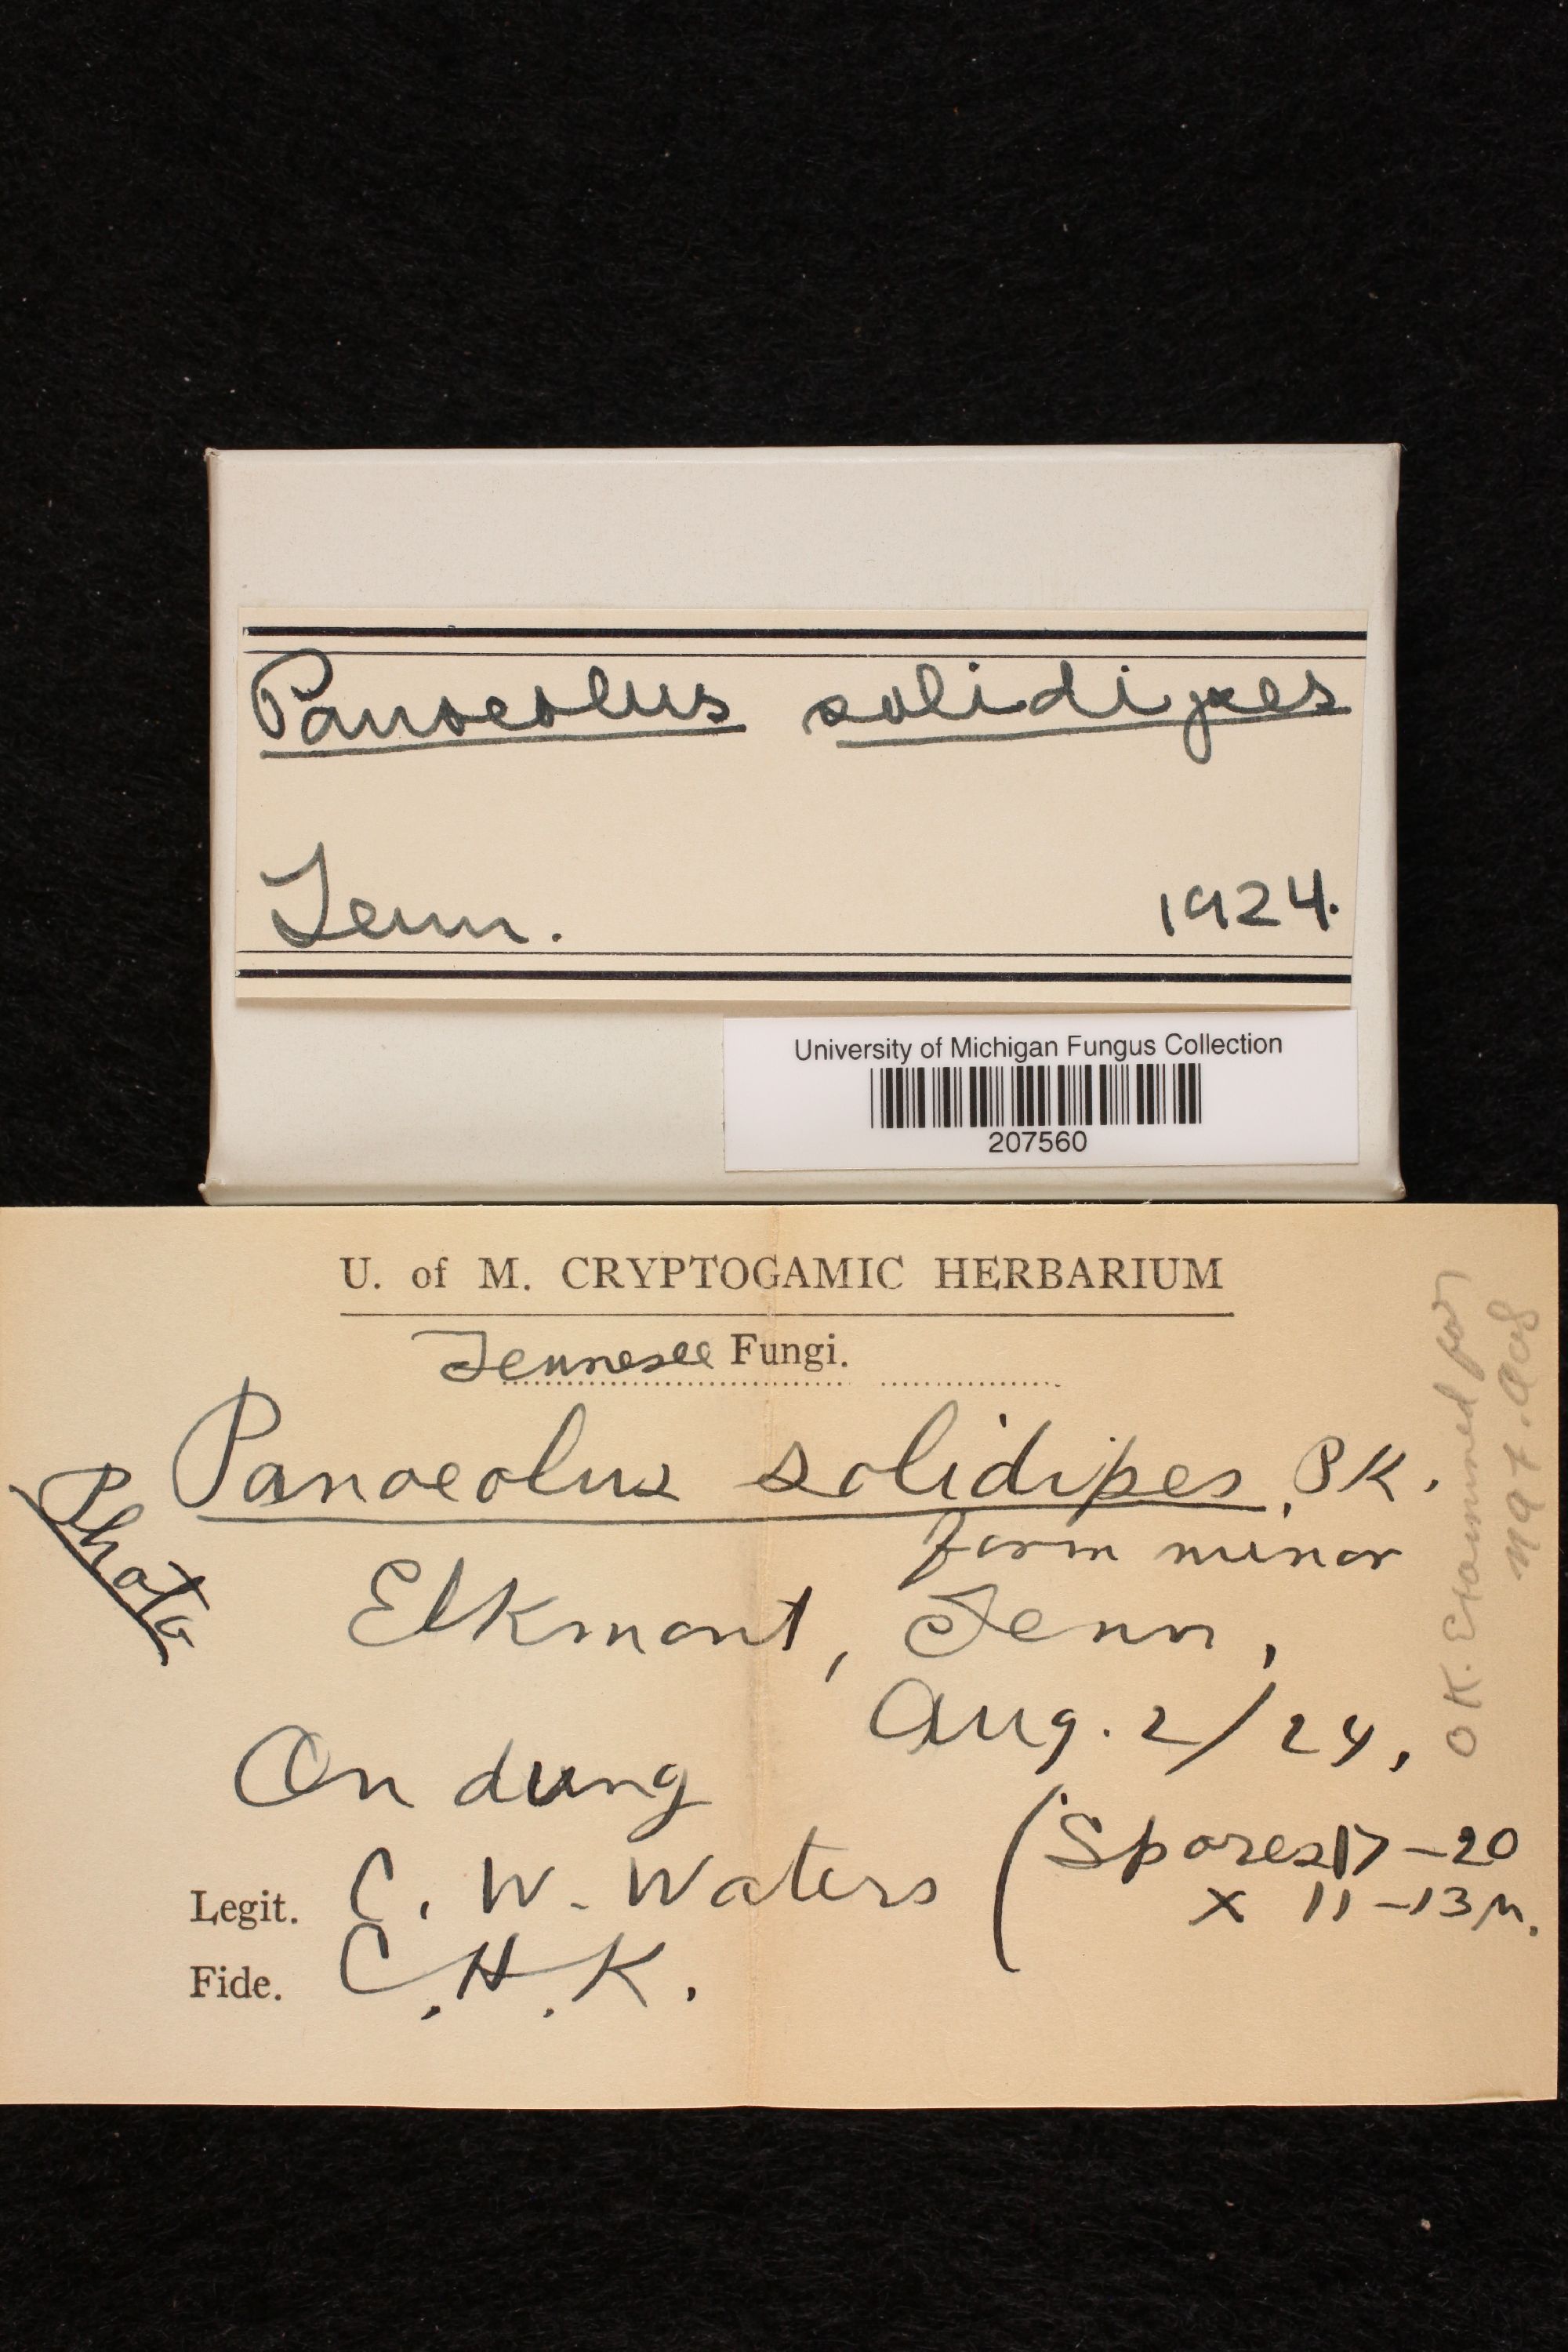 Panoeolus solidipes
Tenn. 1924.
University of Michigan Fungus Collection
207560
U. of M. CRYPTOGAMIC HERBARIUM
Tennesee Fungi.
Panoeolus solidipes, PK.
form minor
Photo
Elkmont, Tenn,
Aug. 2/24,
On dung
(Spores 17-20
x 11-13 µ.
Legit. C. W. Waters
Fide. C.H.K.
OK. Examined for